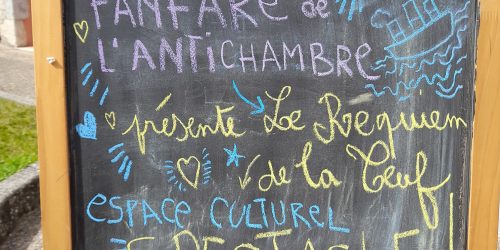 FANFARE de
L'ANTICHAMBRE
présente Le Requiem
de la Teuf
ESPACE CULTUREL
SPECTACLE!